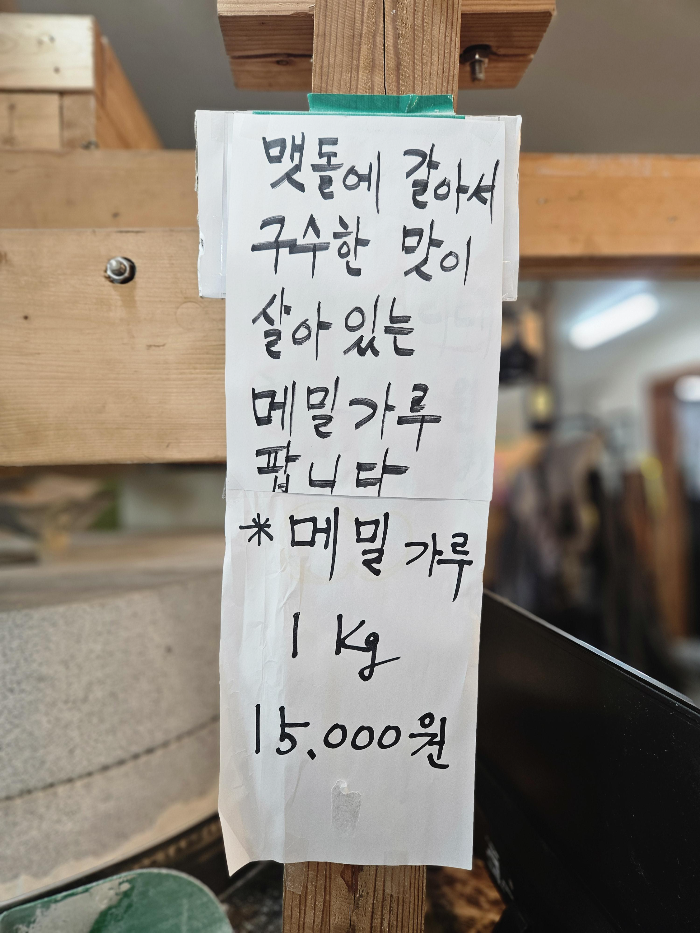 맷돌에 갈아서
구수한 맛이
살아 있는
메밀가루
팝니다
*메밀가루
1 Kg
15,000원